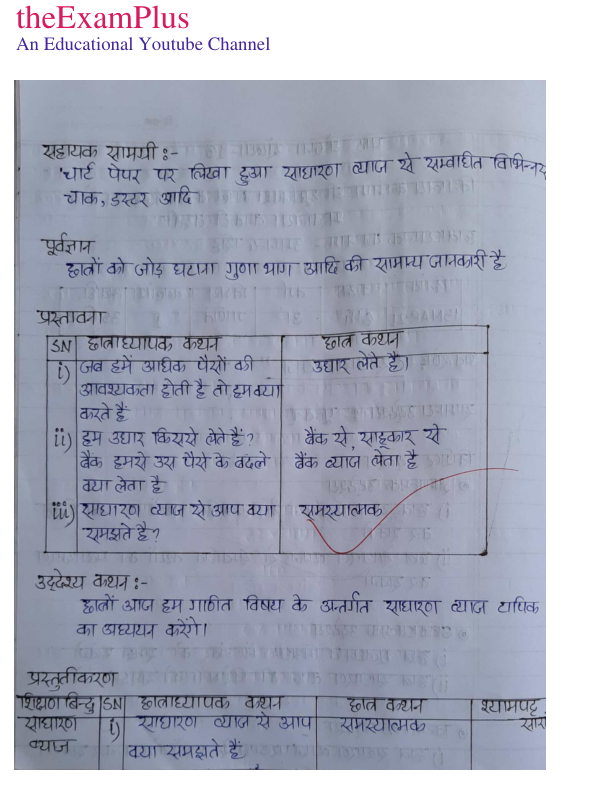 theExamPlus
An Educational Youtube Channel
सहायक सामग्री :-
चार्ट पेपर पर लिखा हुआ साधारण ब्याज से सम्बंधित विभिन्न
चाक, डस्टर आदि
पूर्वज्ञान
छात्रों को जोड़ घटाना गुणा भाग आदि की सामान्य जानकारी है
प्रस्तावना
SN छात्राध्यापक कथन छात्र कथन
i) जब हमें अधिक पैसों की उधार लेते हैं।
आवश्यकता होती है तो हम क्या
करते हैं
ii) हम उधार किससे लेते हैं? बैंक से, साहूकार से
बैंक हमसे उस पैसे के बदले बैंक ब्याज लेता है
क्या लेता है
iii) साधारण ब्याज से आप क्या समस्यात्मक
समझते है?
उद्देश्य कथन :-
छात्रों आज हम गणित विषय के अन्तर्गत साधारण ब्याज टापिक
का अध्ययन करेंगे।
प्रस्तुतीकरण
शिक्षण बिन्दु SN छात्राध्यापक कथन छात्र कथन श्यामपट्ट
साधारण i) साधारण ब्याज से आप समस्यात्मक
ब्याज क्या समझते हैं